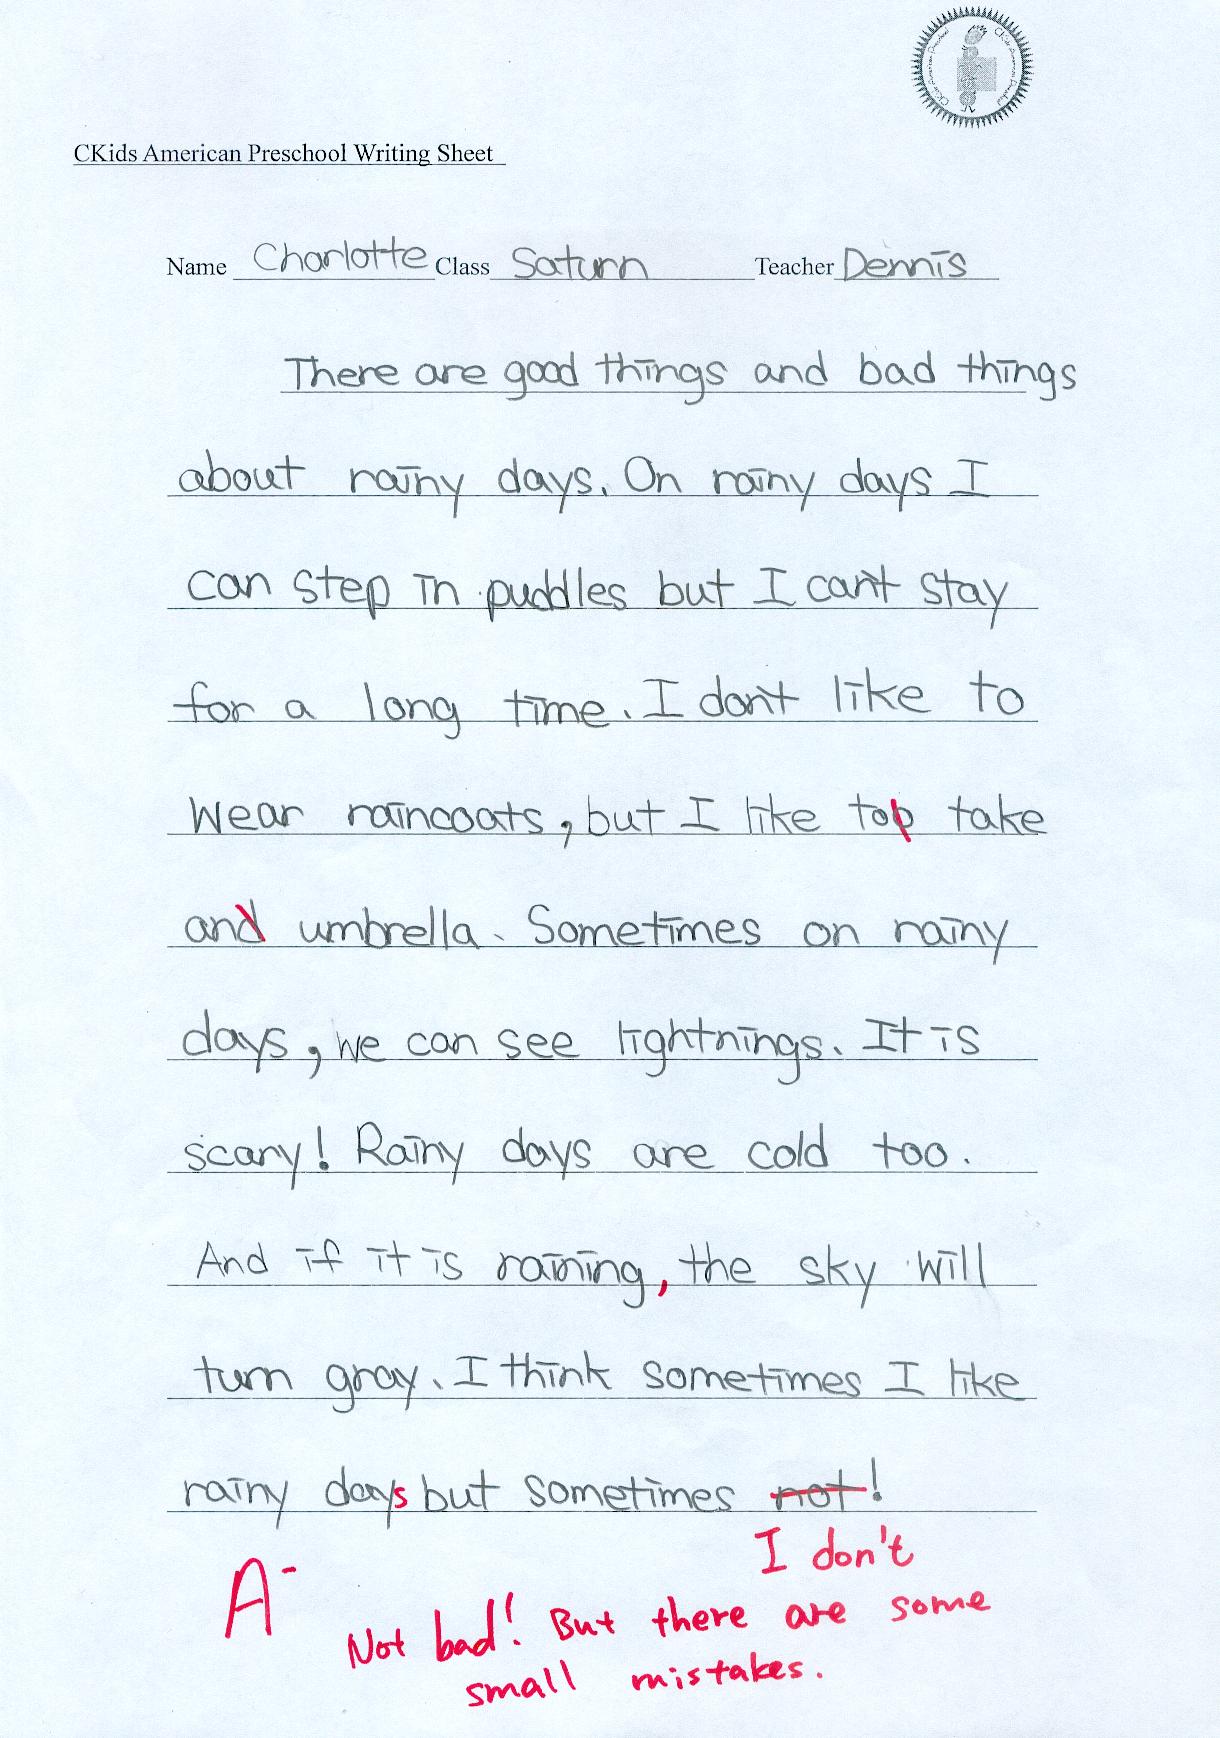 CKids American Preschool Writing Sheet
Name Charlotte Class Saturn Teacher Dennis
There are good things and bad things
about rainy days. On rainy days I
can step in puddles but I can't stay
for a long time. I don't like to
wear raincoats, but I like top take
and umbrella. Sometimes on rainy
days, we can see lightnings. It is
scary! Rainy days are cold too.
And if it is raining, the sky will
turn gray. I think sometimes I like
rainy days but sometimes not!
I don't
A-
Not bad! But there are some
small mistakes.